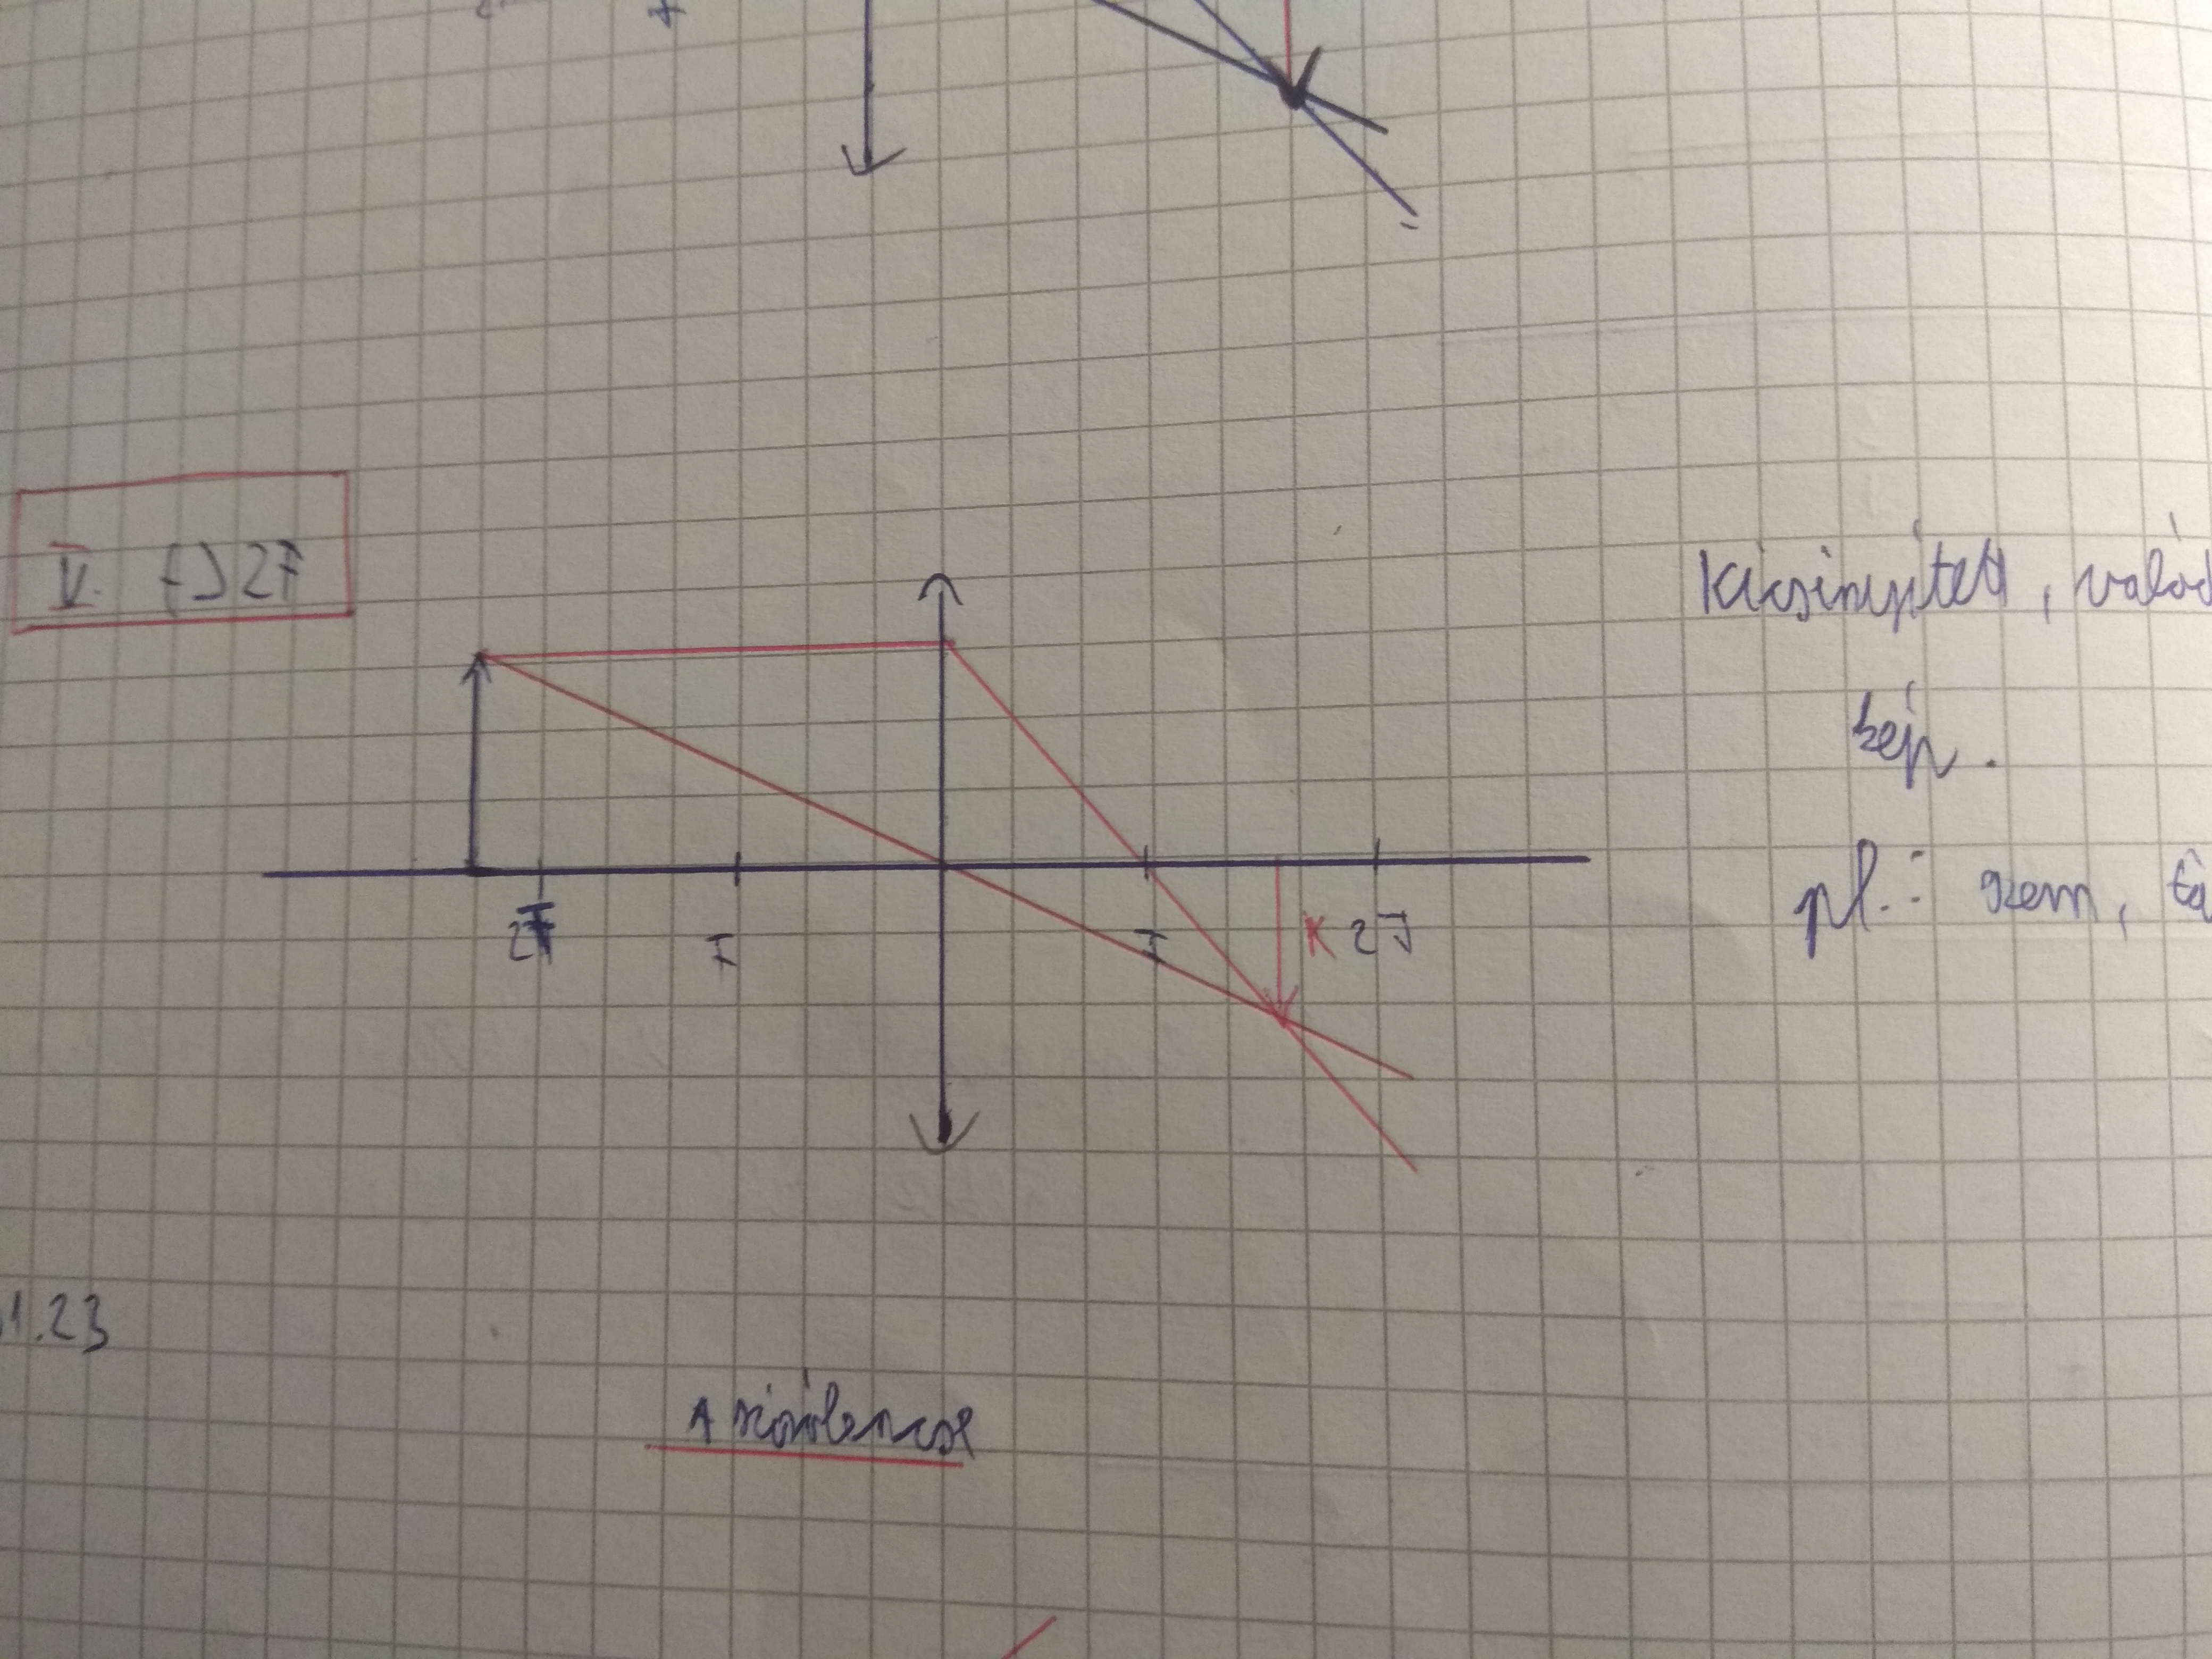 V. t>2F
Kicsinyített, valód
kép.
2F F F K 2F
pl.: szem, fé
1.23
A szórólencse